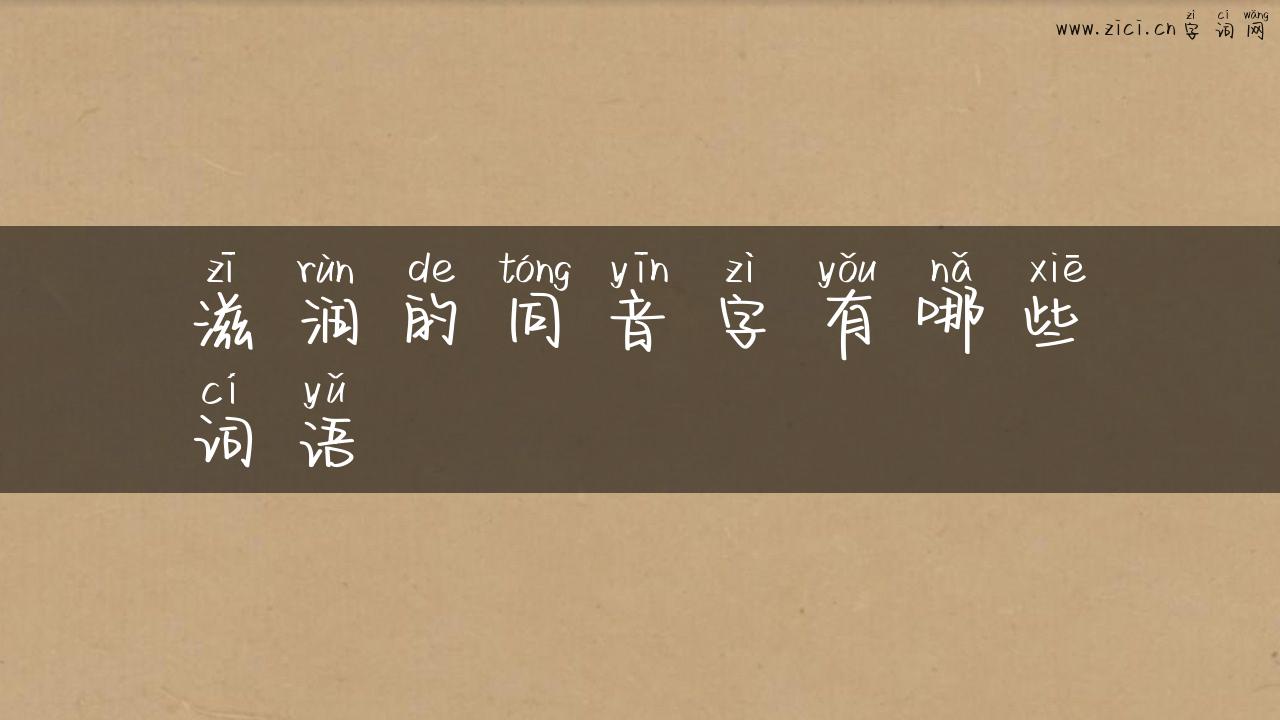 zì cí wǎng
www.zici.cn 字词网
zī rùn de tóng yīn zì yǒu nǎ xiē
滋润的同音字有哪些
cí yǔ
词语